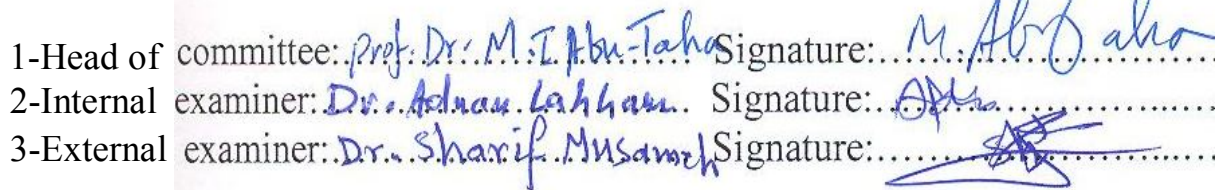 1-Head of committee: Prof. Dr. M. I. Abu-Taha Signature: M. Abu Taha
2-Internal examiner: Dr. Adnan Lahham Signature:
3-External examiner: Dr. Sharif Musameh Signature: